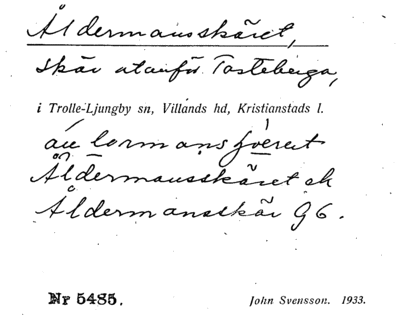 Åldermansskäret,
skär utanför Tosteberga,
i Trolle-Ljungby sn, Villands hd, Kristianstads l.
Åldermansskäret ek
Åldermansskär G6.
Nr 5485. John Svensson. 1933.